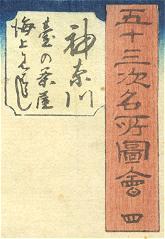 五十三次名所圖會 四
神奈川
臺の茶屋
海上見はらし